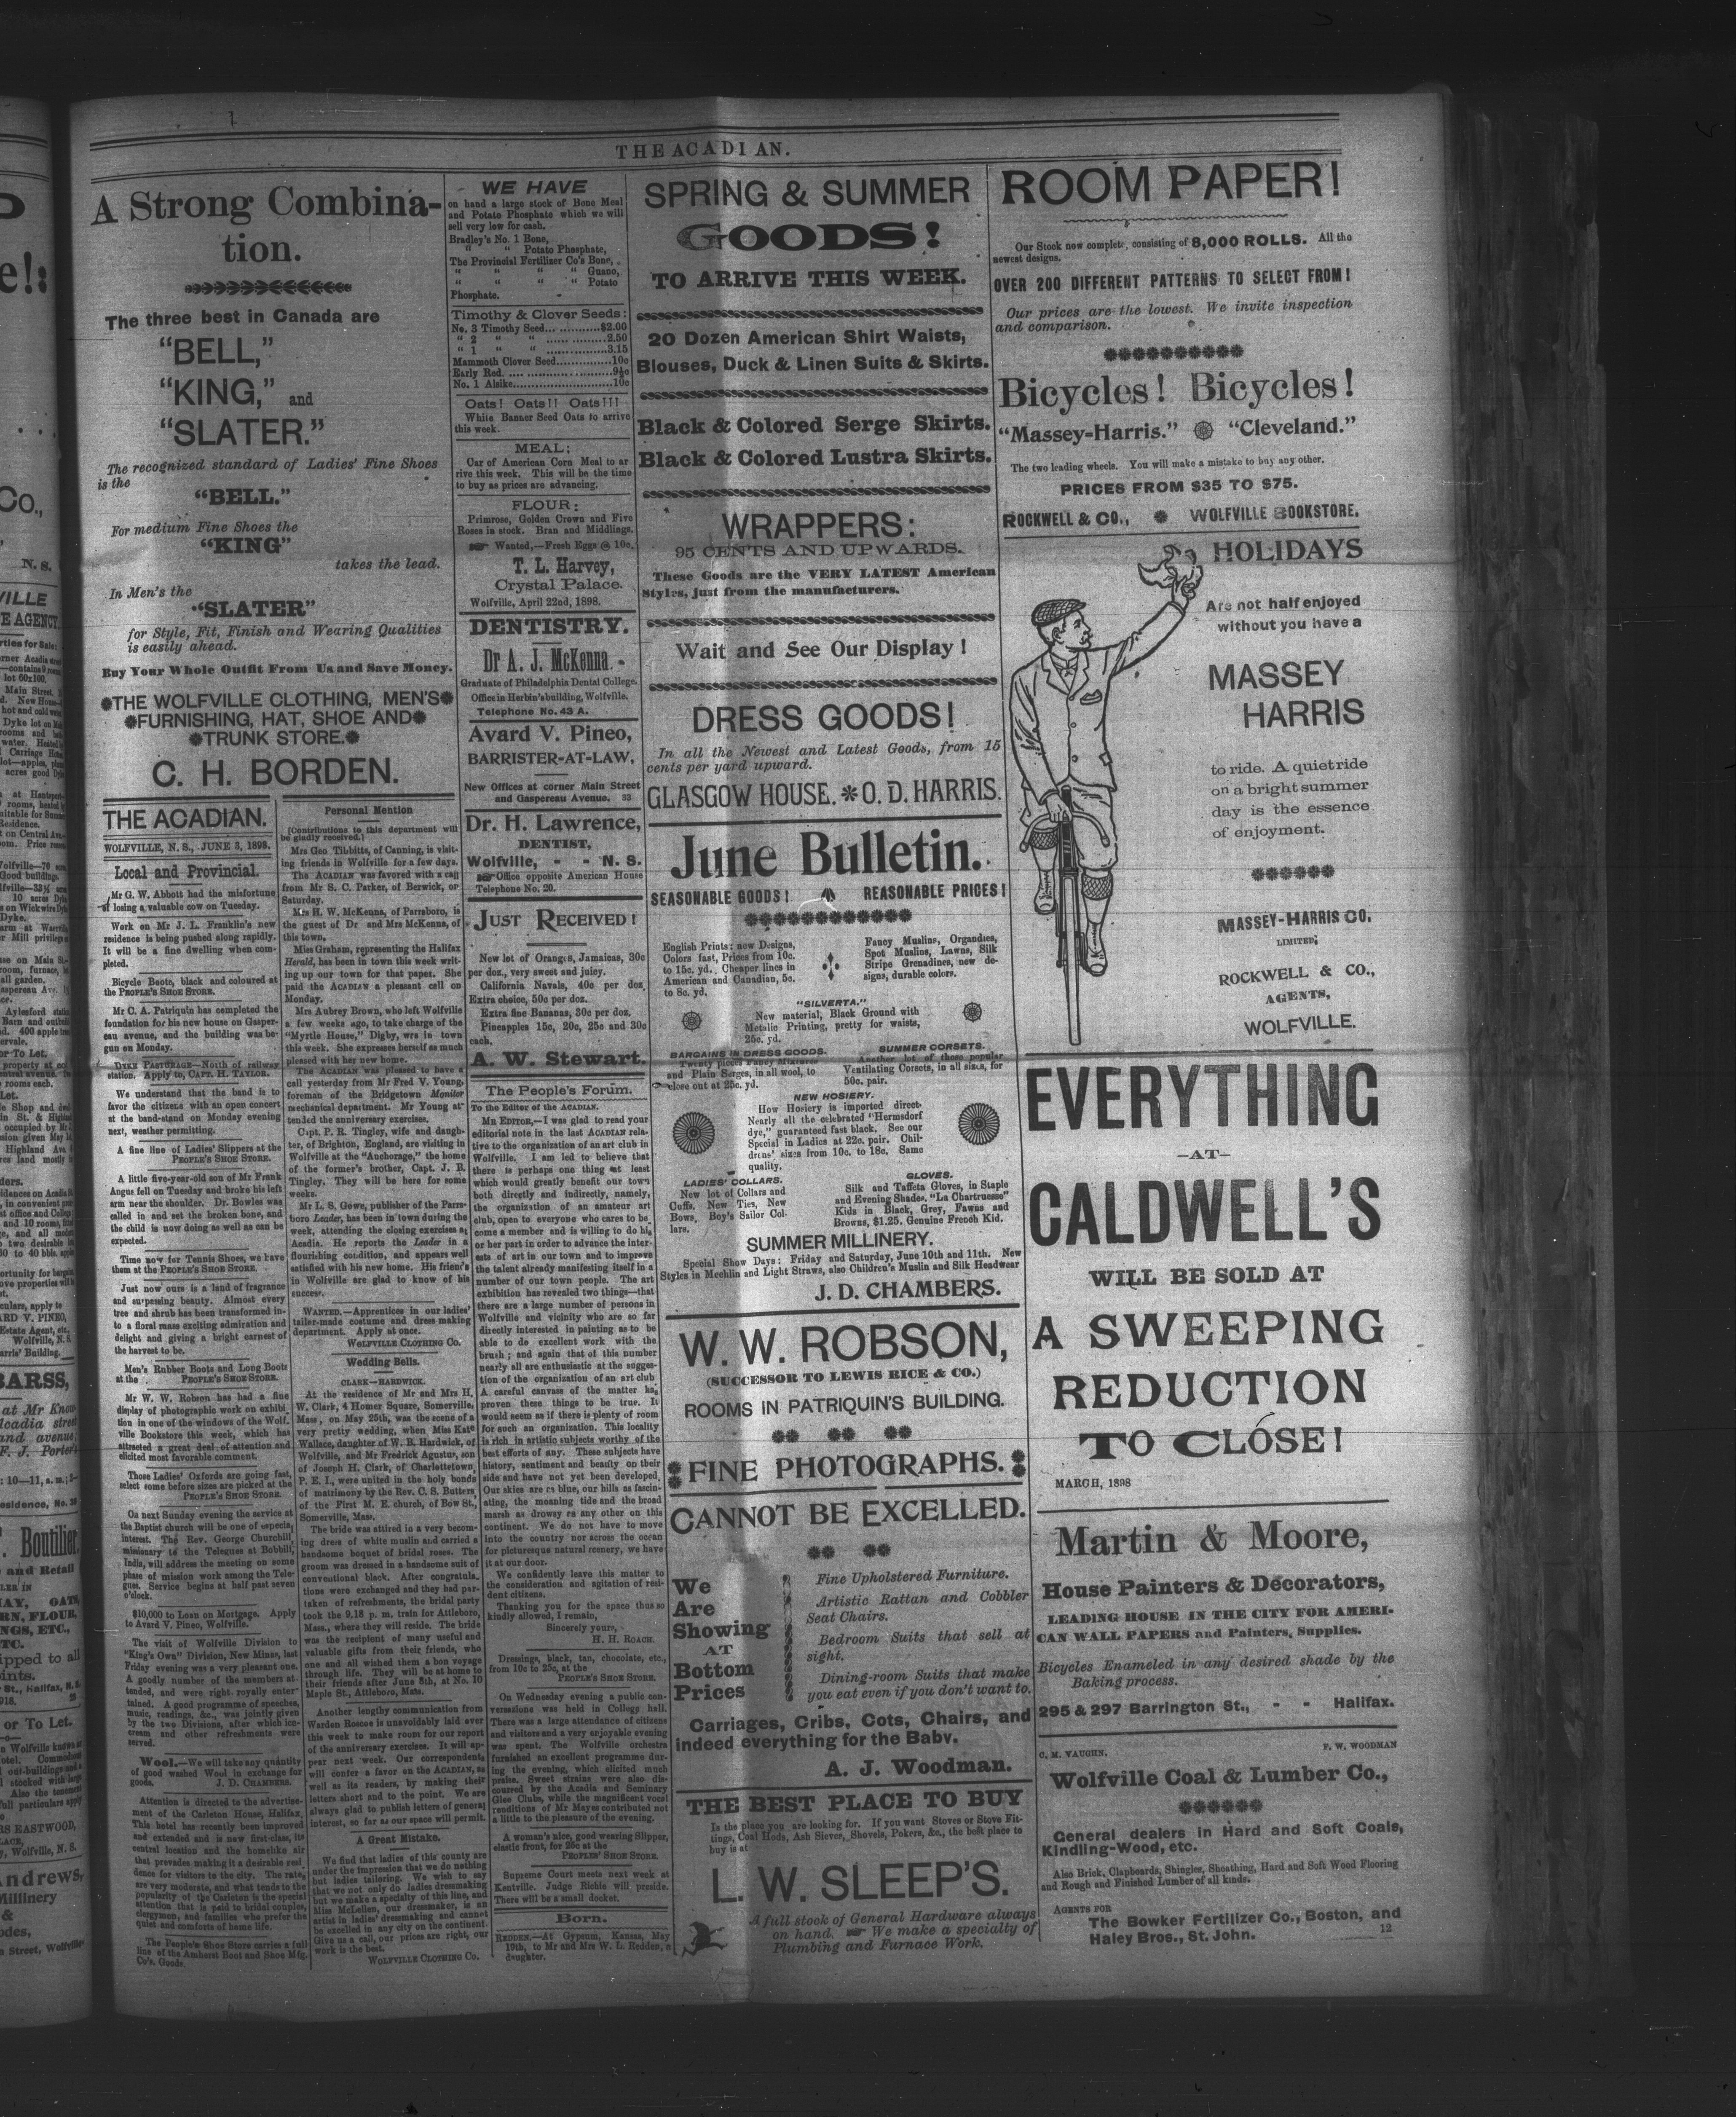 THE ACADIAN.
A Strong Combina-
tion.
The three best in Canada are
"BELL,"
"KING," and
"SLATER."
The recognized standard of Ladies' Fine Shoes
is the
"BELL."
For medium Fine Shoes the
"KING"
takes the lead.
In Men's the
"SLATER"
for Style, Fit, Finish and Wearing Qualities
is easily ahead.
Buy Your Whole Outfit From Us and Save Money.
THE WOLFVILLE CLOTHING, MEN'S
FURNISHING, HAT, SHOE AND
TRUNK STORE.
C. H. BORDEN.
THE ACADIAN.
WOLFVILLE, N. S., JUNE 3, 1898.
Local and Provincial.
Mr G. W. Abbott had the misfortune
of losing a valuable cow on Tuesday.
Work on Mr J. L. Franklin's new
residence is being pushed along rapidly.
It will be a fine dwelling when com-
pleted.
Bicycle Boots, black and coloured at
the PEOPLE'S SHOE STORE.
Mr C. A. Patriquin has completed the
foundation for his new house on Gasper-
eau avenue, and the building was be-
gun on Monday.
DYKE PASTURAGE—North of railway
station. Apply to, CAPT. H. TAYLOR.
We understand that the band is to
favor the citizens with an open concert
at the band-stand on Monday evening
next, weather permitting.
A fine line of Ladies' Slippers at the
PEOPLE'S SHOE STORE.
A little five-year-old son of Mr Frank
Angus fell on Tuesday and broke his left
arm near the shoulder. Dr. Bowles was
called in and set the broken bone, and
the child is now doing as well as can be
expected.
Time now for Tennis Shoes, we have
them at the PEOPLE'S SHOE STORE.
Just now ours is a land of fragrance
and surpassing beauty. Almost every
tree and shrub has been transformed in-
to a floral mass exciting admiration and
delight and giving a bright earnest of
the harvest to be.
Men's Rubber Boots and Long Boots
at the PEOPLE'S SHOE STORE.
Mr W. W. Robson has had a fine
display of photographic work on exhibi
tion in one of the windows of the Wolf-
ville Bookstore this week, which has
attracted a great deal of attention and
elicited most favorable comment.
Those Ladies' Oxfords are going fast,
select some before sizes are picked at the
PEOPLE'S SHOE STORE.
On next Sunday evening the service at
the Baptist church will be one of especial
interest. The Rev. George Churchill,
missionary to the Telegues at Bobbili,
India, will address the meeting on some
phase of mission work among the Tele-
gues. Service begins at half past seven
o'clock.
$10,000 to Loan on Mortgage. Apply
to Avard V. Pineo, Wolfville.
The visit of Wolfville Division to
"King's Own" Division, New Minas, last
Friday evening was a very pleasant one.
A goodly number of the members at-
tended, and were right royally enter-
tained. A good programme of speeches,
music, readings, &c., was jointly given
by the two Divisions, after which ice-
cream and other refreshments were
served.
Wool.—We will take any quantity
of good washed Wool in exchange for
goods. J. D. CHAMBERS.
Attention is directed to the advertise-
ment of the Carleton House, Halifax.
This hotel has recently been improved
and extended and is now first-class, its
central location and the homelike air
that prevades making it a desirable resi
dence for visitors to the city. The rate,
are very moderate, and what tends to the
popularity of the Carleton is the special
attention that is paid to bridal couples,
clergymen, and families who prefer the
quiet and comforts of home life.
The People's Shoe Store carries a full
line of the Amherst Boot and Shoe Mfg.
Co's. Goods.
Personal Mention
[Contributions to this department will
be gladly received.]
Mrs Geo. Tibbitts, of Canning, is visit-
ing friends in Wolfville for a few days.
The ACADIAN was favored with a call
from Mr S. C. Parker, of Berwick, or
Saturday.
Mrs H. W. McKenna, of Parrsboro, is
the guest of Dr and Mrs McKenna, of
this town.
Miss Graham, representing the Halifax
Herald, has been in town this week writ-
ing up our town for that paper. She
paid the ACADIAN a pleasant call on
Monday.
Mrs Aubrey Brown, who left Wolfville
a few weeks ago, to take charge of the
"Myrtle House," Digby, was in town
this week. She expresses herself as much
pleased with her new home.
The ACADIAN was pleased to have a
call yesterday from Mr Fred V. Young,
foreman of the Bridgetown Monitor
mechanical department. Mr Young at-
tended the anniversary exercises.
Capt. P. R. Tingley, wife and daugh-
ter, of Brighton, England, are visiting in
Wolfville at the "Anchorage," the home
of the former's brother, Capt. J. R.
Tingley. They will be here for some
weeks.
Mr L. S. Gowe, publisher of the Parrs-
boro Leader, has been in town during the
week, attending the closing exercises at
Acadia. He reports the Leader in a
flourishing condition, and appears well
satisfied with his new home. His friends
in Wolfville are glad to know of his
success.
WANTED.—Apprentices in our ladies'
tailor-made costume and dress making
department. Apply at once.
WOLFVILLE CLOTHING Co.
Wedding Bells.
CLARK—HARDWICK.
At the residence of Mr and Mrs H.
W. Clark, 4 Homer Square, Somerville,
Mass, on May 25th, was the scene of a
very pretty wedding, when Miss Kate
Wallace, daughter of W. B. Hardwick, of
Wolfville, and Mr Fredrick Agustus, son
of Joseph H. Clark, of Charlottetown,
P. E. I., were united in the holy bonds
of matrimony by the Rev. C. S. Butters
of the First M. E. church, of Bow St.,
Somerville, Mass.
The bride was attired in a very becom-
ing dress of white muslin and carried a
handsome boquet of bridal roses. The
groom was dressed in a handsome suit of
conventional black. After congratula-
tions were exchanged and they had par-
taken of refreshments, the bridal party
took the 9.18 p. m. train for Attleboro,
Mass., where they will reside. The bride
was the recipient of many useful and
valuable gifts from their friends, who
one and all wished them a bon voyage
through life. They will be at home to
their friends after June 8th, at No. 10
Maple St., Attleboro, Mass.
Another lengthy communication from
Warden Roscoe is unavoidably laid over
this week to make room for our report
of the anniversary exercises. It will ap-
pear next week. Our correspondents
will confer a favor on the ACADIAN, as
well as its readers, by making their
letters short and to the point. We are
always glad to publish letters of general
interest, so far as our space will permit.
A Great Mistake.
We find that ladies of this county are
under the impression that we do nothing
but ladies tailoring. We wish to say
that we not only do ladies dressmaking
but we make a specialty of this line, and
Miss McLellen, our dressmaker, is an
artist in ladies' dressmaking and cannot
be excelled in any city on the continent.
Give us a call, our prices are right, our
work is the best.
WOLFVILLE CLOTHING Co.
WE HAVE
on hand a large stock of Bone Meal
and Potato Phosphate which we will
sell very low for cash.
Bradley's No. 1 Bone,
" " Potato Phosphate,
The Provincial Fertilizer Co's Bone,
" " " " Guano,
" " " " Potato
Phosphate.
Timothy & Clover Seeds:
No. 3 Timothy Seed............$2.00
" 2 " " ..............2.50
" 1 " " ..............3.15
Mammoth Clover Seed.............10c
Early Red. .........................9½c
No. 1 Alsike.........................10c
Oats! Oats!! Oats!!!
White Banner Seed Oats to arrive
this week.
MEAL;
Car of American Corn Meal to ar
rive this week. This will be the time
to buy as prices are advancing.
FLOUR:
Primrose, Golden Crown and Five
Roses in stock. Bran and Middlings.
Wanted,—Fresh Eggs @ 10c.
T. L. Harvey,
Crystal Palace.
Wolfville, April 22nd, 1898.
DENTISTRY.
Dr A. J. McKenna
Graduate of Philadelphia Dental College.
Office in Herbin's building, Wolfville.
Telephone No. 43 A.
Avard V. Pineo,
BARRISTER-AT-LAW,
New Offices at corner Main Street
and Gaspereau Avenue. 33
Dr. H. Lawrence,
DENTIST,
Wolfville, - - N. S.
Office opposite American House
Telephone No. 20.
JUST RECEIVED!
New lot of Oranges, Jamaicas, 30c
per doz., very sweet and juicy.
California Navals, 40c per doz.
Extra choice, 50c per doz.
Extra fine Bananas, 30c per doz.
Pineapples 15c, 20c, 25c and 30c
each.
A. W. Stewart.
The People's Forum.
To the Editor of the ACADIAN.
MR EDITOR,—I was glad to read your
editorial note in the last ACADIAN rela-
tive to the organization of an art club in
Wolfville. I am led to believe that
there is perhaps one thing at least
which would greatly benefit our town
both directly and indirectly, namely,
the organization of an amateur art
club, open to everyone who cares to be-
come a member and is willing to do his
or her part in order to advance the inter-
ests of art in our town and to improve
the talent already manifesting itself in a
number of our town people. The art
exhibition has revealed two things—that
there are a large number of persons in
Wolfville and vicinity who are so far
directly interested in painting as to be
able to do excellent work with the
brush; and again that of this number
nearly all are enthusiastic at the sugges-
tion of the organization of an art club
A careful canvass of the matter has
proven these things to be true. It
would seem as if there is plenty of room
for such an organization. This locality
is rich in artistic subjects worthy of the
best efforts of any. These subjects have
history, sentiment and beauty on their
side and have not yet been developed.
Our skies are as blue, our hills as fascin-
ating, the moaning tide and the broad
marsh as drowsy as any other on this
continent. We do not have to move
into the country nor across the ocean
for picturesque natural scenery, we have
it at our door.
We confidently leave this matter to
the consideration and agitation of resi-
dent citizens.
Thanking you for the space thus so
kindly allowed, I remain,
Sincerely yours,
H. H. ROACH.
Dressings, black, tan, chocolate, etc.,
from 10c to 25c, at the
PEOPLE'S SHOE STORE.
On Wednesday evening a public con-
versazione was held in College hall.
There was a large attendance of citizens
and visitors and a very enjoyable evening
was spent. The Wolfville orchestra
furnished an excellent programme dur-
ing the evening, which elicited much
praise. Sweet strains were also dis-
coursed by the Acadia and Seminary
Glee Clubs, while the magnificent vocal
renditions of Mr Mayes contributed not
a little to the pleasure of the evening.
A woman's nice, good wearing Slipper,
elastic front, for 98c at the
PEOPLES' SHOE STORE.
Supreme Court meets next week at
Kentville. Judge Richie will preside.
There will be a small docket.
Born.
REDDEN.—At Gypsum, Kansas, May
19th, to Mr and Mrs W. L. Redden, a
daughter.
SPRING & SUMMER
GOODS!
TO ARRIVE THIS WEEK.
20 Dozen American Shirt Waists,
Blouses, Duck & Linen Suits & Skirts.
Black & Colored Serge Skirts.
Black & Colored Lustra Skirts.
WRAPPERS:
95 CENTS AND UPWARDS.
These Goods are the VERY LATEST American
Styles, just from the manufacturers.
Wait and See Our Display!
DRESS GOODS!
In all the Newest and Latest Goods, from 15
cents per yard upward.
GLASGOW HOUSE. * O. D. HARRIS.
June Bulletin.
SEASONABLE GOODS! REASONABLE PRICES!
English Prints: new Designs,
Colors fast, Prices from 10c.
to 15c. yd. Cheaper lines in
American and Canadian, 5c.
to 8c. yd.
Fancy Muslins, Organdies,
Spot Muslins, Lawns, Silk
Stripe Grenadines, new de-
signs, durable colors.
"SILVERTA."
New material, Black Ground with
Metalic Printing, pretty for waists,
25c. yd.
BARGAINS IN DRESS GOODS.
Twenty pieces Fancy Mixtures
and Plain Serges, in all wool, to
close out at 25c. yd.
SUMMER CORSETS.
Another lot of those popular
Ventilating Corsets, in all sizes, for
50c. pair.
NEW HOSIERY.
How Hosiery is imported direct-
Nearly all the celebrated "Hermsdorf
dye," guaranteed fast black. See our
Special in Ladies at 22c. pair. Chil-
drens' sizes from 10c. to 18c. Same
quality.
LADIES' COLLARS.
New lot of Collars and
Cuffs. New Ties, New
Bows, Boy's Sailor Col-
lars.
GLOVES.
Silk and Taffeta Gloves, in Staple
and Evening Shades. "La Chartruesse"
Kids in Black, Grey, Fawns and
Browns, $1.25. Genuine French Kid.
SUMMER MILLINERY.
Special Show Days: Friday and Saturday, June 10th and 11th. New
Styles in Mechlin and Light Straws, also Children's Muslin and Silk Headwear
J. D. CHAMBERS.
W. W. ROBSON,
(SUCCESSOR TO LEWIS RICE & CO.)
ROOMS IN PATRIQUIN'S BUILDING.
FINE PHOTOGRAPHS.
CANNOT BE EXCELLED.
We
Are
Showing
AT
Bottom
Prices
Fine Upholstered Furniture.
Artistic Rattan and Cobbler
Seat Chairs.
Bedroom Suits that sell at
sight.
Dining-room Suits that make
you eat even if you don't want to.
Carriages, Cribs, Cots, Chairs, and
indeed everything for the Baby.
A. J. Woodman.
THE BEST PLACE TO BUY
Is the place you are looking for. If you want Stoves or Stove Fit-
tings, Coal Hods, Ash Sieves, Shovels, Pokers, &c., the best place to
buy is at
L. W. SLEEP'S.
A full stock of General Hardware always
on hand. We make a specialty of
Plumbing and Furnace Work.
ROOM PAPER!
Our Stock now complete, consisting of 8,000 ROLLS. All the
newest designs.
OVER 200 DIFFERENT PATTERNS TO SELECT FROM!
Our prices are the lowest. We invite inspection
and comparison.
Bicycles! Bicycles!
"Massey-Harris." "Cleveland."
The two leading wheels. You will make a mistake to buy any other.
PRICES FROM $35 TO $75.
ROCKWELL & CO., WOLFVILLE BOOKSTORE.
HOLIDAYS
Are not half enjoyed
without you have a
MASSEY
HARRIS
to ride. A quiet ride
on a bright summer
day is the essence
of enjoyment.
MASSEY-HARRIS CO.
LIMITED;
ROCKWELL & CO.,
AGENTS,
WOLFVILLE.
EVERYTHING
—AT—
CALDWELL'S
WILL BE SOLD AT
A SWEEPING
REDUCTION
TO CLOSE!
MARCH, 1898
Martin & Moore,
House Painters & Decorators,
LEADING HOUSE IN THE CITY FOR AMERI-
CAN WALL PAPERS and Painters, Supplies.
Bicycles Enameled in any desired shade by the
Baking process.
295 & 297 Barrington St., - - Halifax.
C. M. VAUGHN. F. W. WOODMAN
Wolfville Coal & Lumber Co.,
General dealers in Hard and Soft Coals,
Kindling-Wood, etc.
Also Brick, Clapboards, Shingles, Sheathing, Hard and Soft Wood Flooring
and Rough and Finished Lumber of all kinds.
AGENTS FOR
The Bowker Fertilizer Co., Boston, and
Haley Bros., St. John. 12